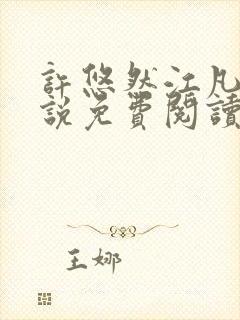 許悠然江凡
說免費閱讀
王娜